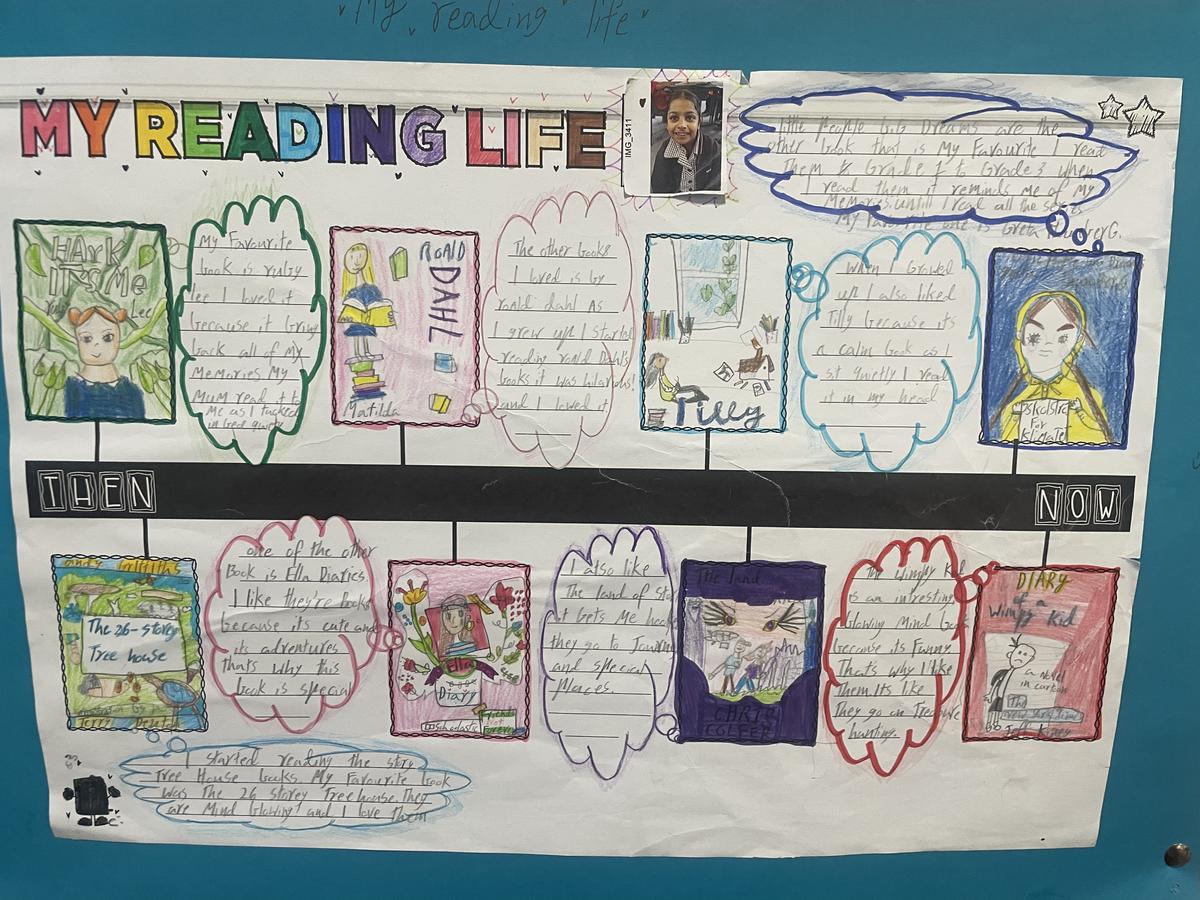 "My reading life"
MY READING LIFE
IMG_3411
little People Big Dreams are the
other book that is My Favourite I read
Them & Grade 1 to Grade 3 when
I read them it reminds me of My
Memories. untill I read all the series
My favourite one is Greta
HArk
IT'S Me
Ruby Lee
My Favourite
book is ruby
lee I loved it
because it bring
back all of My
Memories My
Mum read it to
Me as I tucked
in bed quietly
RoAlD
DAHL
Matilda
The other books
I loved is by
roald dahl As
I grew up I started
reading roald Dahl's
books it was hilarious!
and I loved it
Tilly
When I Growed
up I also liked
Tilly because its
a calm book as I
sit quietly I read
it in my head
For
Klimatet
THEN
NOW
andy Griffiths
The 26-storey
Tree house
Terry Denton
one of the other
Book is Ella Diaries.
I like they're books
because its cute and
its adventures
thats why this
book is special
Ella
Diary
Friends
Not
Forever
Scholastic
I also like
The land of Sto
it Gets Me
they go to
and special
Places.
The land
CHRIS
COLFER
The Wimpy Kid
is an intresting
blowing Mind book
because its Funny.
That's why I like
Them. Its like
They go on Treasure
hunting.
DIARY
of a
Wimpy Kid
a novel
in cartoon
Jeff Kinney
I started reading the story
Tree House books. My Favourite book
was The 26 storey Treehouse. They
are Mind blowing and I love them